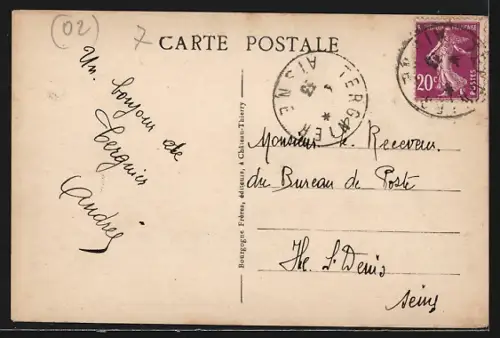 (02)
7
CARTE POSTALE
Un bonjour de
Tergnier
Andrée
Bourgogne Frères, éditeurs, à Château-Thierry
TERGNIER
AISNE
20c
POSTES
Monsieur le Receveur
du Bureau de Poste
Ile St Denis
Seine